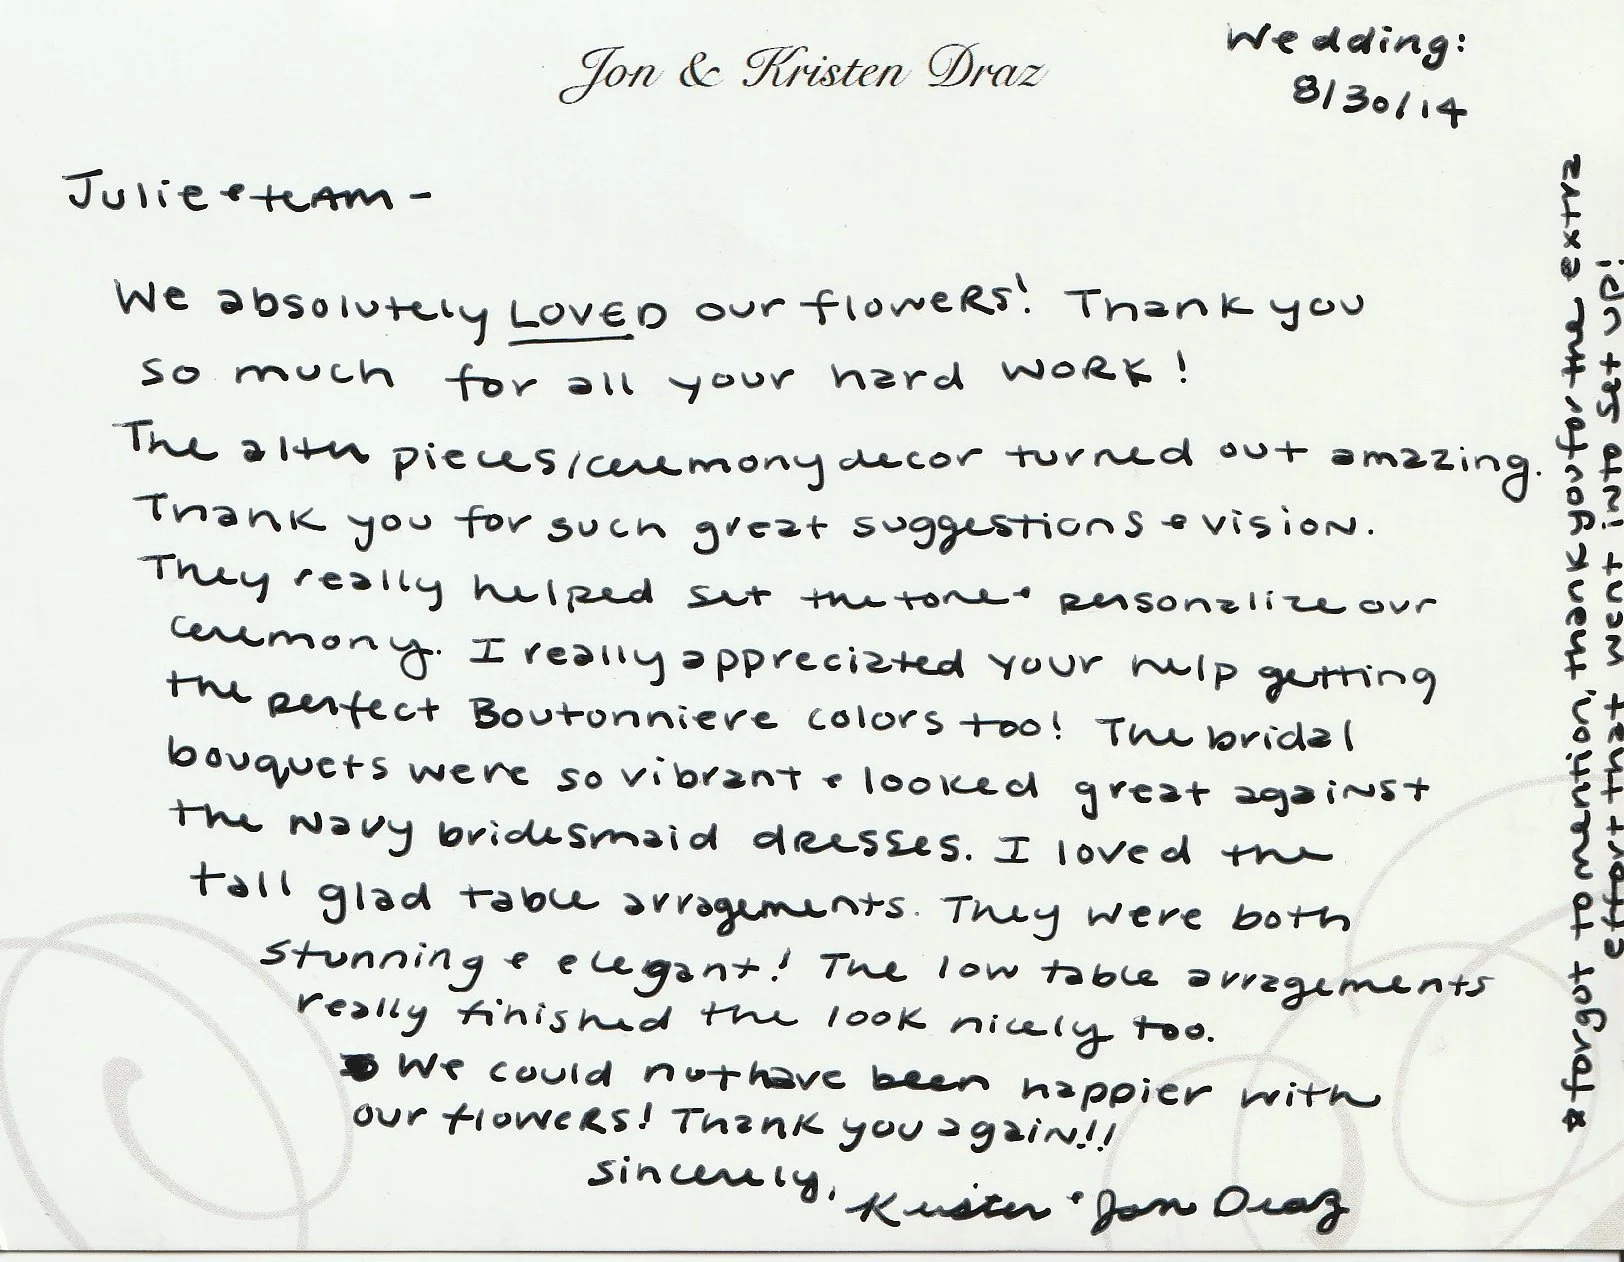 Jon & Kristen Draz
Wedding:
8/30/14
Julie & team -
We absolutely LOVED our flowers! Thank you
so much for all your hard work!
The alter pieces/ceremony decor turned out amazing.
Thank you for such great suggestions & vision.
They really helped set the tone & personalize our
ceremony. I really appreciated your help getting
the perfect Boutonniere colors too! The bridal
bouquets were so vibrant & looked great against
the Navy bridesmaid dresses. I loved the
tall glad table arragements. They were both
stunning & elegant! The low table arragements
really finished the look nicely too.
We could not have been happier with
our flowers! Thank you again!!
Sincerely,
Kristen & Jon Draz
& forgot to mention thank you for the extra
effort that went into set up!